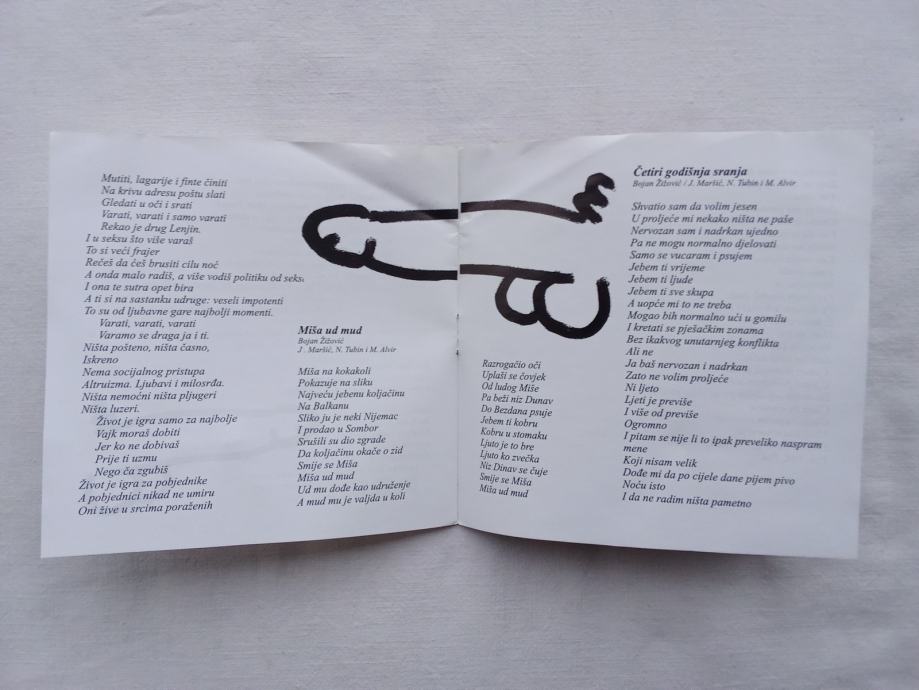 Mutiti, lagarije i finte činiti
Na krivu adresu poštu slati
Gledati u oči i srati
Varati, varati i samo varati
Rekao je drug Lenjin.
I u seksu što više varaš
To si veći frajer
Rečeš da ćeš brusiti cilu noć
A onda malo radiš, a više vodiš politiku od seksa
I ona te sutra opet bira
A ti si na sastanku udruge: veseli impotenti
To su od ljubavne gare najbolji momenti.
Varati, varati, varati
Varamo se draga ja i ti.
Ništa pošteno, ništa časno,
Iskreno
Nema socijalnog pristupa
Altruizma. Ljubavi i milosrđa.
Ništa nemoćni ništa pljugeri
Ništa luzeri.
Život je igra samo za najbolje
Vajk moraš dobiti
Jer ko ne dobivaš
Prije ti uzmu
Nego ča zgubiš
Život je igra za pobjednike
A pobjednici nikad ne umiru
Oni žive u srcima poraženih
Miša ud mud
Bojan Žižović
J. Maršić, N. Tubin i M. Alvir
Miša na kokakoli
Pokazuje na sliku
Najveću jebenu koljačinu
Na Balkanu
Sliko ju je neki Nijemac
I prodao u Sombor
Srušili su dio zgrade
Da koljačinu okače o zid
Smije se Miša
Miša ud mud
Ud mu dođe kao udruženje
A mud mu je valjda u koli
Razrogačio oči
Uplaši se čovjek
Od ludog Miše
Pa beži niz Dunav
Do Bezdana psuje
Jebem ti kobru
Kobru u stomaku
Ljuto je to bre
Ljuto ko zvečka
Niz Dinav se čuje
Smije se Miša
Miša ud mud
Četiri godišnja sranja
Bojan Žižović / J. Maršić, N. Tubin i M. Alvir
Shvatio sam da volim jesen
U proljeće mi nekako ništa ne paše
Nervozan sam i nadrkan ujedno
Pa ne mogu normalno djelovati
Samo se vucaram i psujem
Jebem ti vrijeme
Jebem ti ljude
Jebem ti sve skupa
A uopće mi to ne treba
Mogao bih normalno ući u gomilu
I kretati se pješačkim zonama
Bez ikakvog unutarnjeg konflikta
Ali ne
Ja baš nervozan i nadrkan
Zato ne volim proljeće
Ni ljeto
Ljeti je previše
I više od previše
Ogromno
I pitam se nije li to ipak preveliko naspram
mene
Koji nisam velik
Dođe mi da po cijele dane pijem pivo
Noću isto
I da ne radim ništa pametno